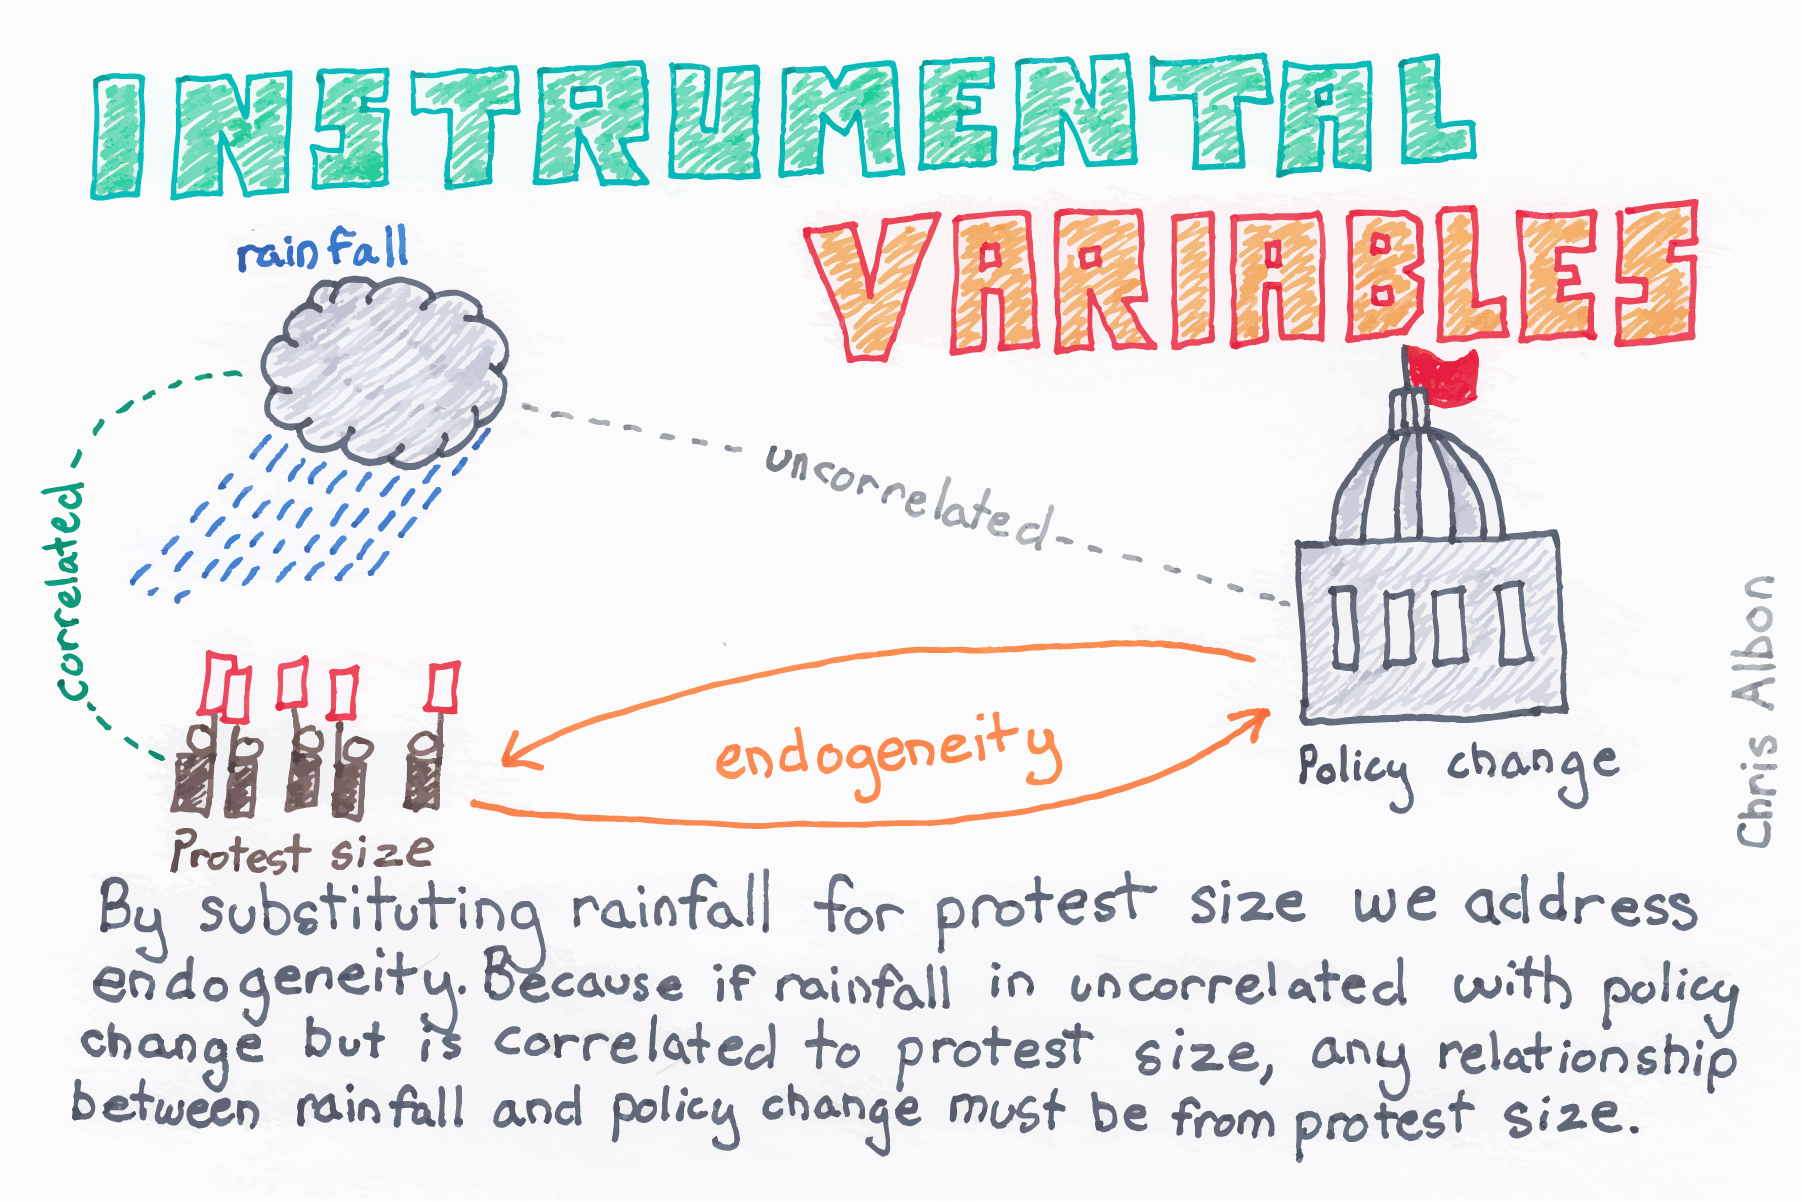 INSTRUMENTAL
VARIABLES
rainfall
correlated
uncorrelated
endogeneity
Policy change
Protest size
Chris Albon
By substituting rainfall for protest size we address
endogeneity. Because if rainfall in uncorrelated with policy
change but is correlated to protest size, any relationship
between rainfall and policy change must be from protest size.